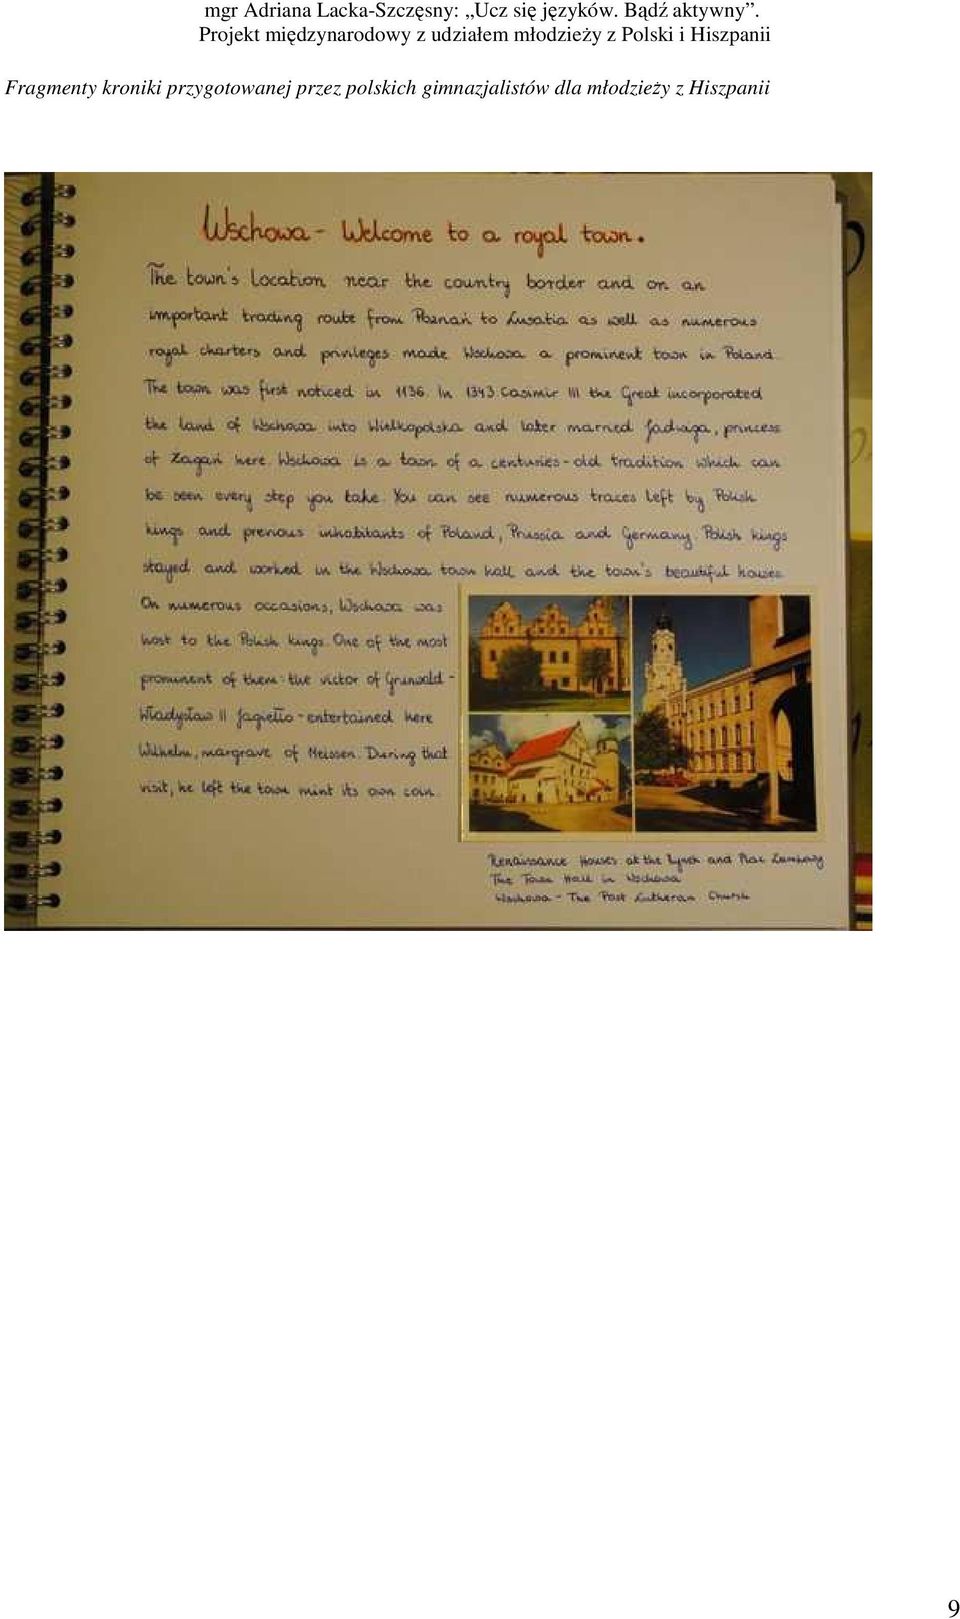 mgr Adriana Lacka-Szczęsny: „Ucz się języków. Bądź aktywny”.
Projekt międzynarodowy z udziałem młodzieży z Polski i Hiszpanii
Fragmenty kroniki przygotowanej przez polskich gimnazjalistów dla młodzieży z Hiszpanii
Wschowa - Welcome to a royal town.
The town's location near the country border and on an
important trading route from Poznań to Lusatia as well as numerous
royal charters and privileges made Wschowa a prominent town in Poland.
The town was first noticed in 1136. In 1343 Casimir III the Great incorporated
the land of Wschowa into Wielkopolska and later married Jadwiga, princess
of Żagań here. Wschowa is a town of a centuries-old tradition which can
be seen every step you take. You can see numerous traces left by Polish
kings and previous inhabitants of Poland, Prussia and Germany. Polish kings
stayed and worked in the Wschowa town hall and the town's beautiful houses.
On numerous occasions, Wschowa was
host to the Polish kings. One of the most
prominent of them: the victor of Grunwald -
Władysław II Jagiełło - entertained here
Wilhelm, margrave of Meissen. During that
visit, he left the town mint its own coin.
Renaissance Houses at the Rynek and Plac Zamkowy
The Town Hall in Wschowa
Wschowa - The Past Lutheran Church
9